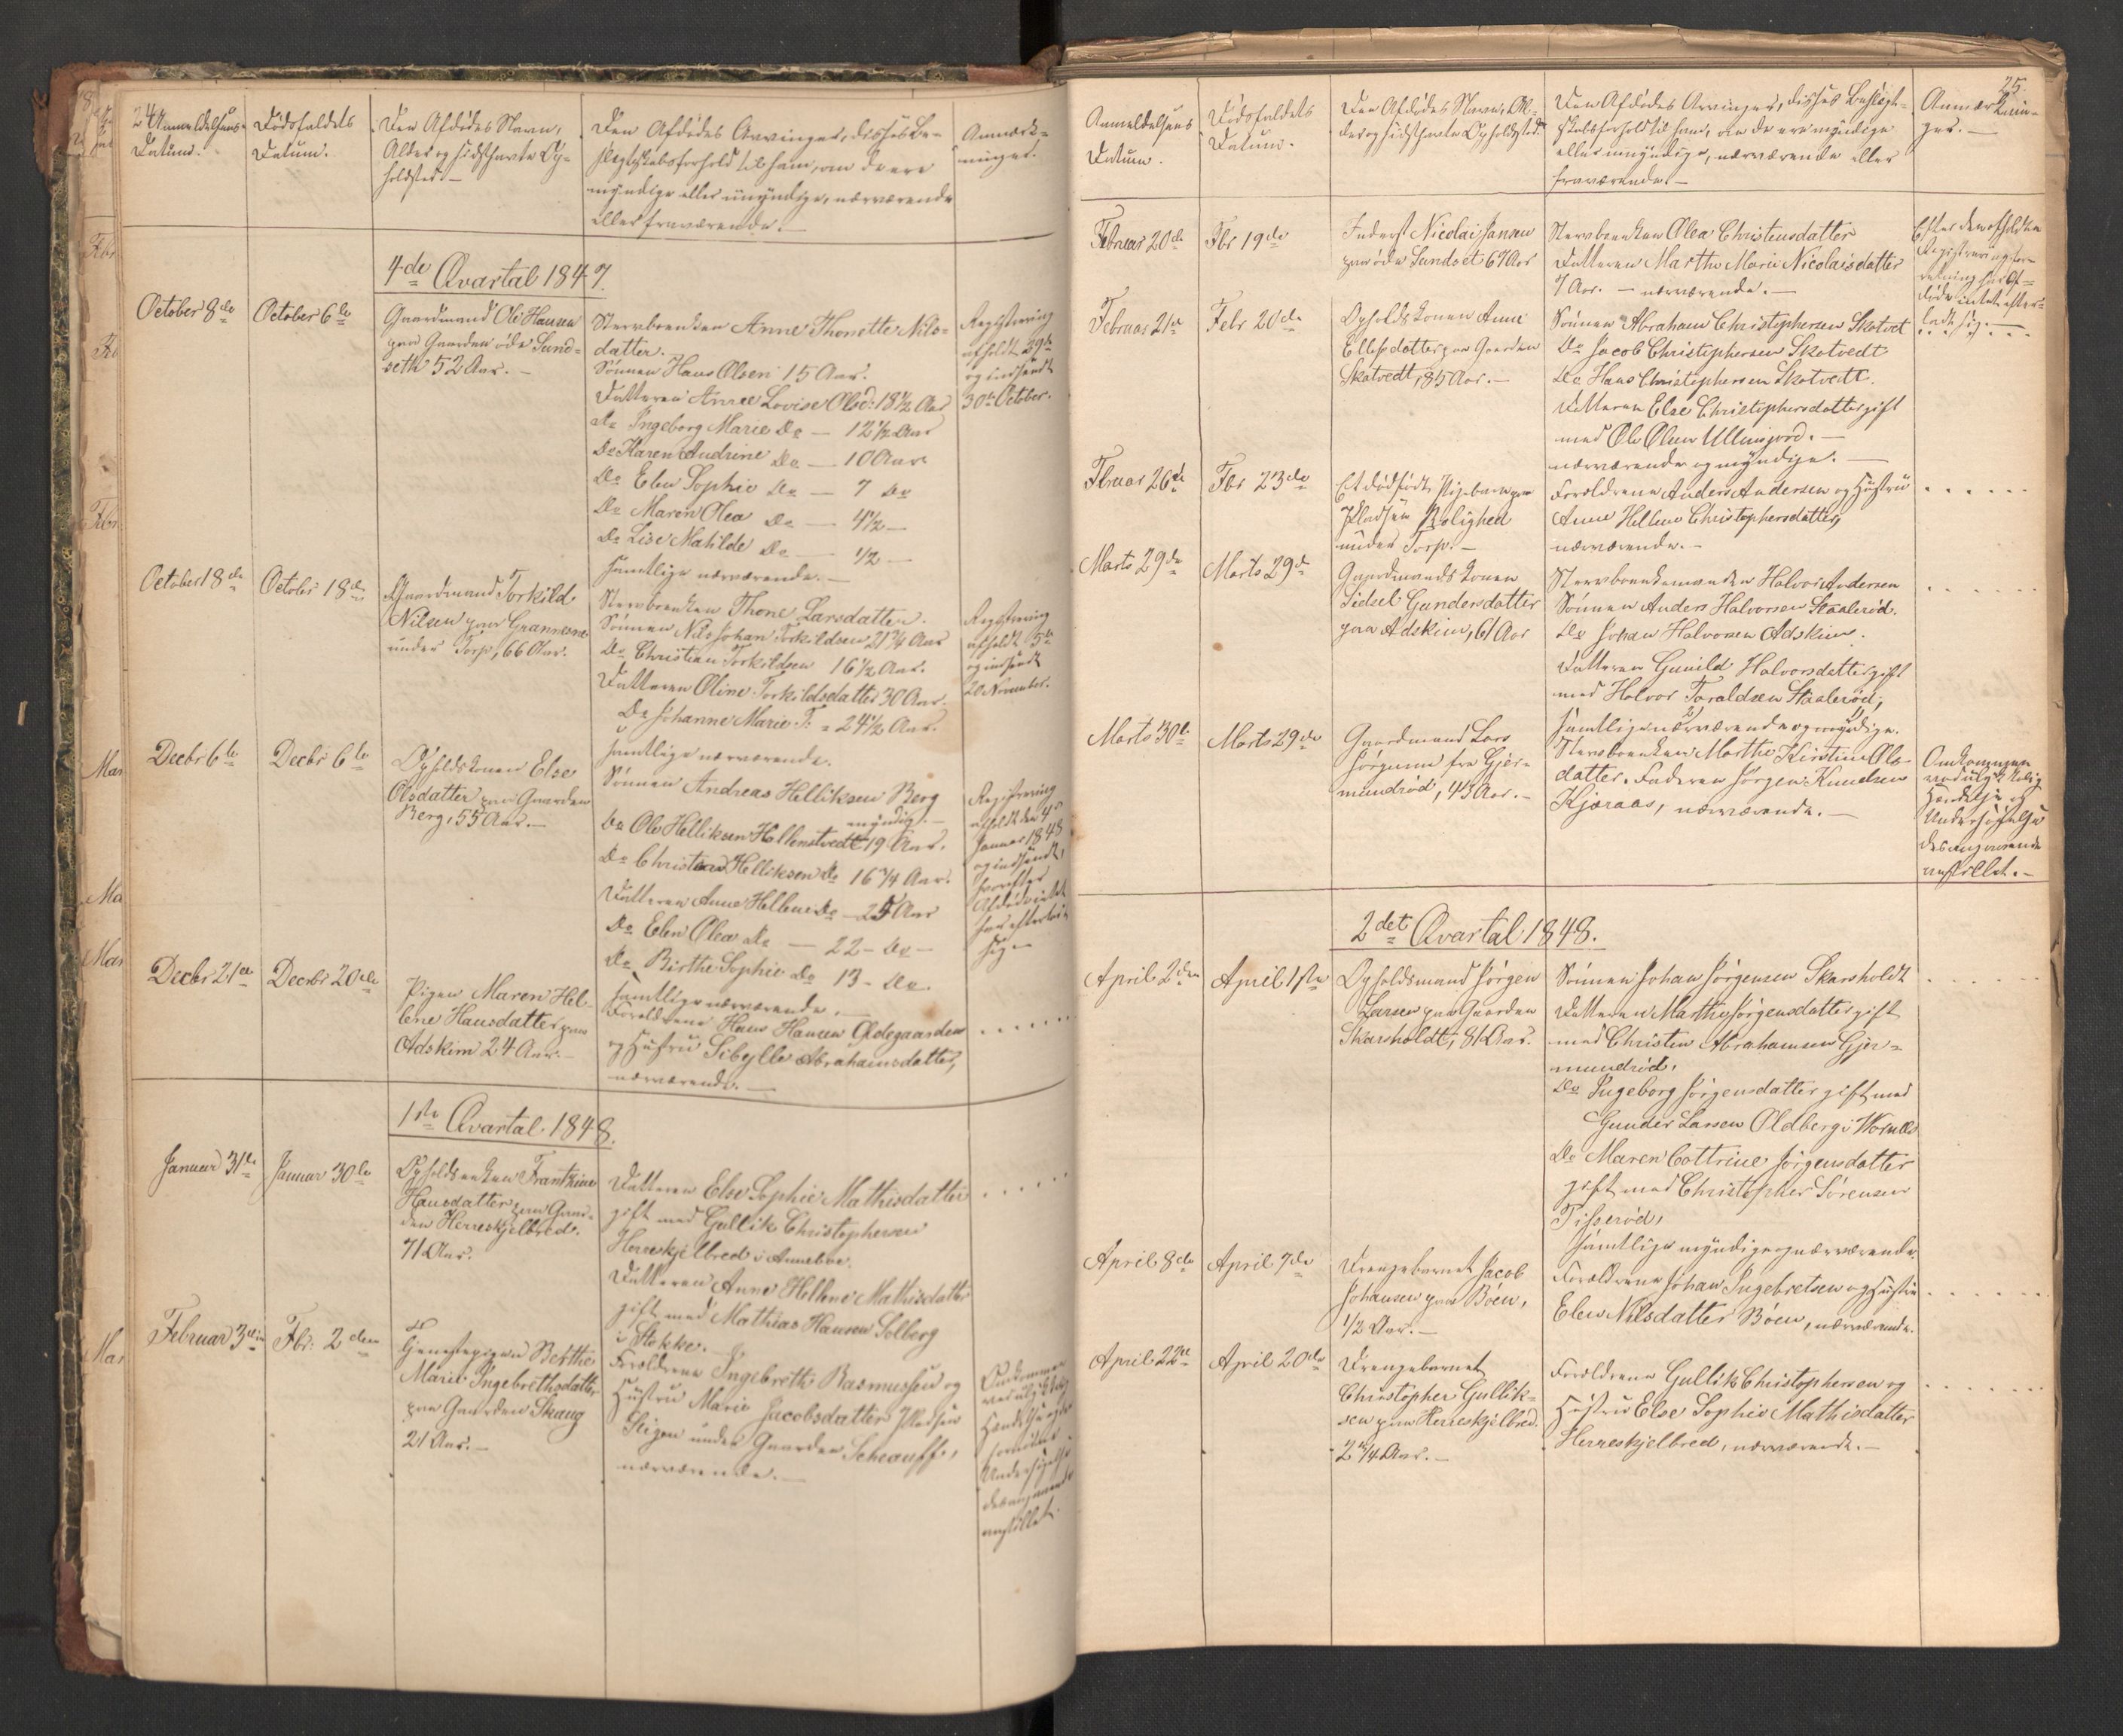 24
Anmeldelsens
Datum.
Dødsfaldets
Datum.
Den Afdødes Navn,
Alder og sidsthavte Op-
holdsted.—
Den Afdødes Arvinger, disses Be-
slegtskabsforhold til ham, om de ere
myndige eller umyndige, nærværende
eller fraværende.—
Anmærk-
ninger.
4de Qvartal 1847.
October 8de
October 6te
Gaardmand Ole Hansen
paa Gaarden øde Sund-
seth 52 Aar.—
Stervboenken Anne Thonette Nils-
datter.
Sønnen Hans Olsen 15 Aar.
Datteren Anne Lovise Olsd: 18½ Aar
Do Ingeborg Marie Do — 12½ Aar
Do Karen Andrine Do — 10 Aar
Do Elen Sophie Do — 7 Do
Do Maren Olea Do — 4½ —
Do Lise Mathilde Do — ½ —
samtlige nærværende.—
Registrering
afholdt 29de
og indsendt
30te October.
October 18de
October 18de
Gaardmand Torkild
Nilsen paa Grannesne
under Torp, 66 Aar.
Stervboenken Thone Larsdatter.
Sønnen Nils Johan Torkildsen 21¼ Aar
Do Christian Torkildsen 16½ Aar.
Datteren Oline Torkildsdatter 30 Aar.
Do Johanne Marie T: = 24½ Aar.
samtlige nærværende.
Registrering
afholdt 5te
og indsendt
20 November.
Decbr 6te
Decbr 6te
Opholdskonen Else
Olsdatter paa Gaarden
Berg, 55 Aar.—
Sønnen Andreas Helliksen Berg
myndig.—
Do Ole Helliksen Hellenstvedt 19 Aar.
Do Christian Helliksen Do 16¾ Aar.
Datteren Anne Hellene Do — 25 Aar
Do Elen Olea Do — 22 — Do —
Do Birthe Sophie Do 13 — Do.
samtlige nærværende.—
Registrering
afholdt den 4de
Januar 1848
og indsendt,
hvorefter
Afdøde intet
har efterladt
sig—
Decbr 21de
Decbr 20de
Pigen Maren Hel-
lene Hansdatter paa
Adskim 24 Aar.—
Forældrene Hans Hansen Ødegaarden
og Hustru Sibylle Abrahamsdatter,
nærværende.—
. . . . . .
1ste Qvartal 1848.
Januar 31te
Januar 30te
Opholdsenken Frantzine
Hansdatter paa Gaar-
den Herreskjelbred.
71 Aar.
Datteren Else Sophie Mathisdatter
gift med Gullik Christophersen
Herreskjelbred i Annebve.
Datteren Anne Hellene Mathisdatter
gift med Mathias Hansen Solberg
i Stokke.—
. . . . . .
Februar 3die
Fbr: 2den
Tjenestepigen Berthe
Marie Ingebrethsdatter
paa Gaarden Skaug
21 Aar.—
Forældrene Ingebreth Rasmussen og
Hustru Marie Jacobsdatter Pladsen
Stigen under Gaarden Scheauff.,
nærværende.—
Omkommen
ved ulykkelig
Hændelse og
Undersøgelse
desangaaende
anstillet.
25.
Anmeldelsens
Datum.
Dødsfaldets
Datum.
Den Afdødes Navn, Al-
der og sidsthavte Opholdsted.
Den Afdødes Arvinger, disses Beslegt-
skabsforhold til ham, om de ere myndige
eller umyndige, nærværende eller
fraværende.—
Anmærknin-
ger.—
Februar 20de
Fbr 19de
Inderst Nicolai Jansen
paa øde Sundset 67 Aar
Stervboenken Olea Christensdatter
Datteren Marthe Marie Nicolaisdatter
7 Aar. — nærværende.—
Efter den afholdte
Registreringsfor-
retning har Af-
døde intet efter-
ladt sig.—
Februar 21de
Febr 20de
Opholdskonen Anne
Ellefsdatter paa Gaarden
Skotvedt, 85 Aar.—
Sønnen Abraham Christophersen Skotvet
Do Jacob Christophersen Skotvedt
Do Hans Christophersen Skotvedt.
Datteren Else Christophersdatter gift
med Ole Olsen Ulleinsjord.—
nærværende og myndige.—
. . . . .
Februar 26de
Fbr 23de
Et dødfødt Pigebarn paa
Pladsen Rolighed
under Torp.—
Forældrene Anders Andersen og Hustru
Anne Hellene Christophersdatter,
nærværende.—
. . . . . .
Marts 29de
Marts 29de
Gaardmandskonen
Sidsel Gundersdatter
paa Adskim, 61 Aar
Stervboenkemanden Halvor Andersen
Sønnen Anders Halvorsen Staalerød.
Do Johan Halvorsen Adskim.
Datteren Gunild Halvorsdatter gift
med Halvor Taraldsen Staalerød,
samtlige nærværende og myndige.
. . . . . .
Marts 30te
Marts 29de
Gaardmand Lars
Jørgensen fra Gjer-
mundrød, 43 Aar.—
Stervboenken Marthe Kirstine Ols-
datter. Faderen Jørgen Knudsen
Kjæraas, nærværende.—
Omkommen
ved ulykkelig
Hændelse og
Undersøgelse
desangaaende
anstillet.—
2det Qvartal 1848.
April 2den
April 1ste
Opholdsmand Jørgen
Larsen paa Gaarden
Skarsholdt, 81 Aar.
Sønnen Johan Jørgensen Skarsholdt
Datteren Marthe Jørgensdatter gift
med Christen Abrahamsen Gjer-
mundrød.
Do Ingeborg Jørgensdatter gift med
Gunder Larsen Oldberg i Wornes
Do Maren Cattrine Jørgensdatter
gift med Christopher Sørensen
Tisserød,
samtlige myndige og nærværende.
. . . . .
April 8de
April 7de
Drengebarnet Jacob
Johansen paa Bøen,
½ Aar.—
Forældrene Johan Ingebretsen og Hustru
Elen Nilsdatter Bøen, nærværende.
. . . . . .
April 22de
April 20de
Drengebarnet
Christopher Gullik-
sen paa Herreskjelbred.
2¾ Aar.—
Forældrene Gullik Christophersen og
Hustru Else Sophie Mathisdatter
Herreskjelbred, nærværende.—
. . . . . .